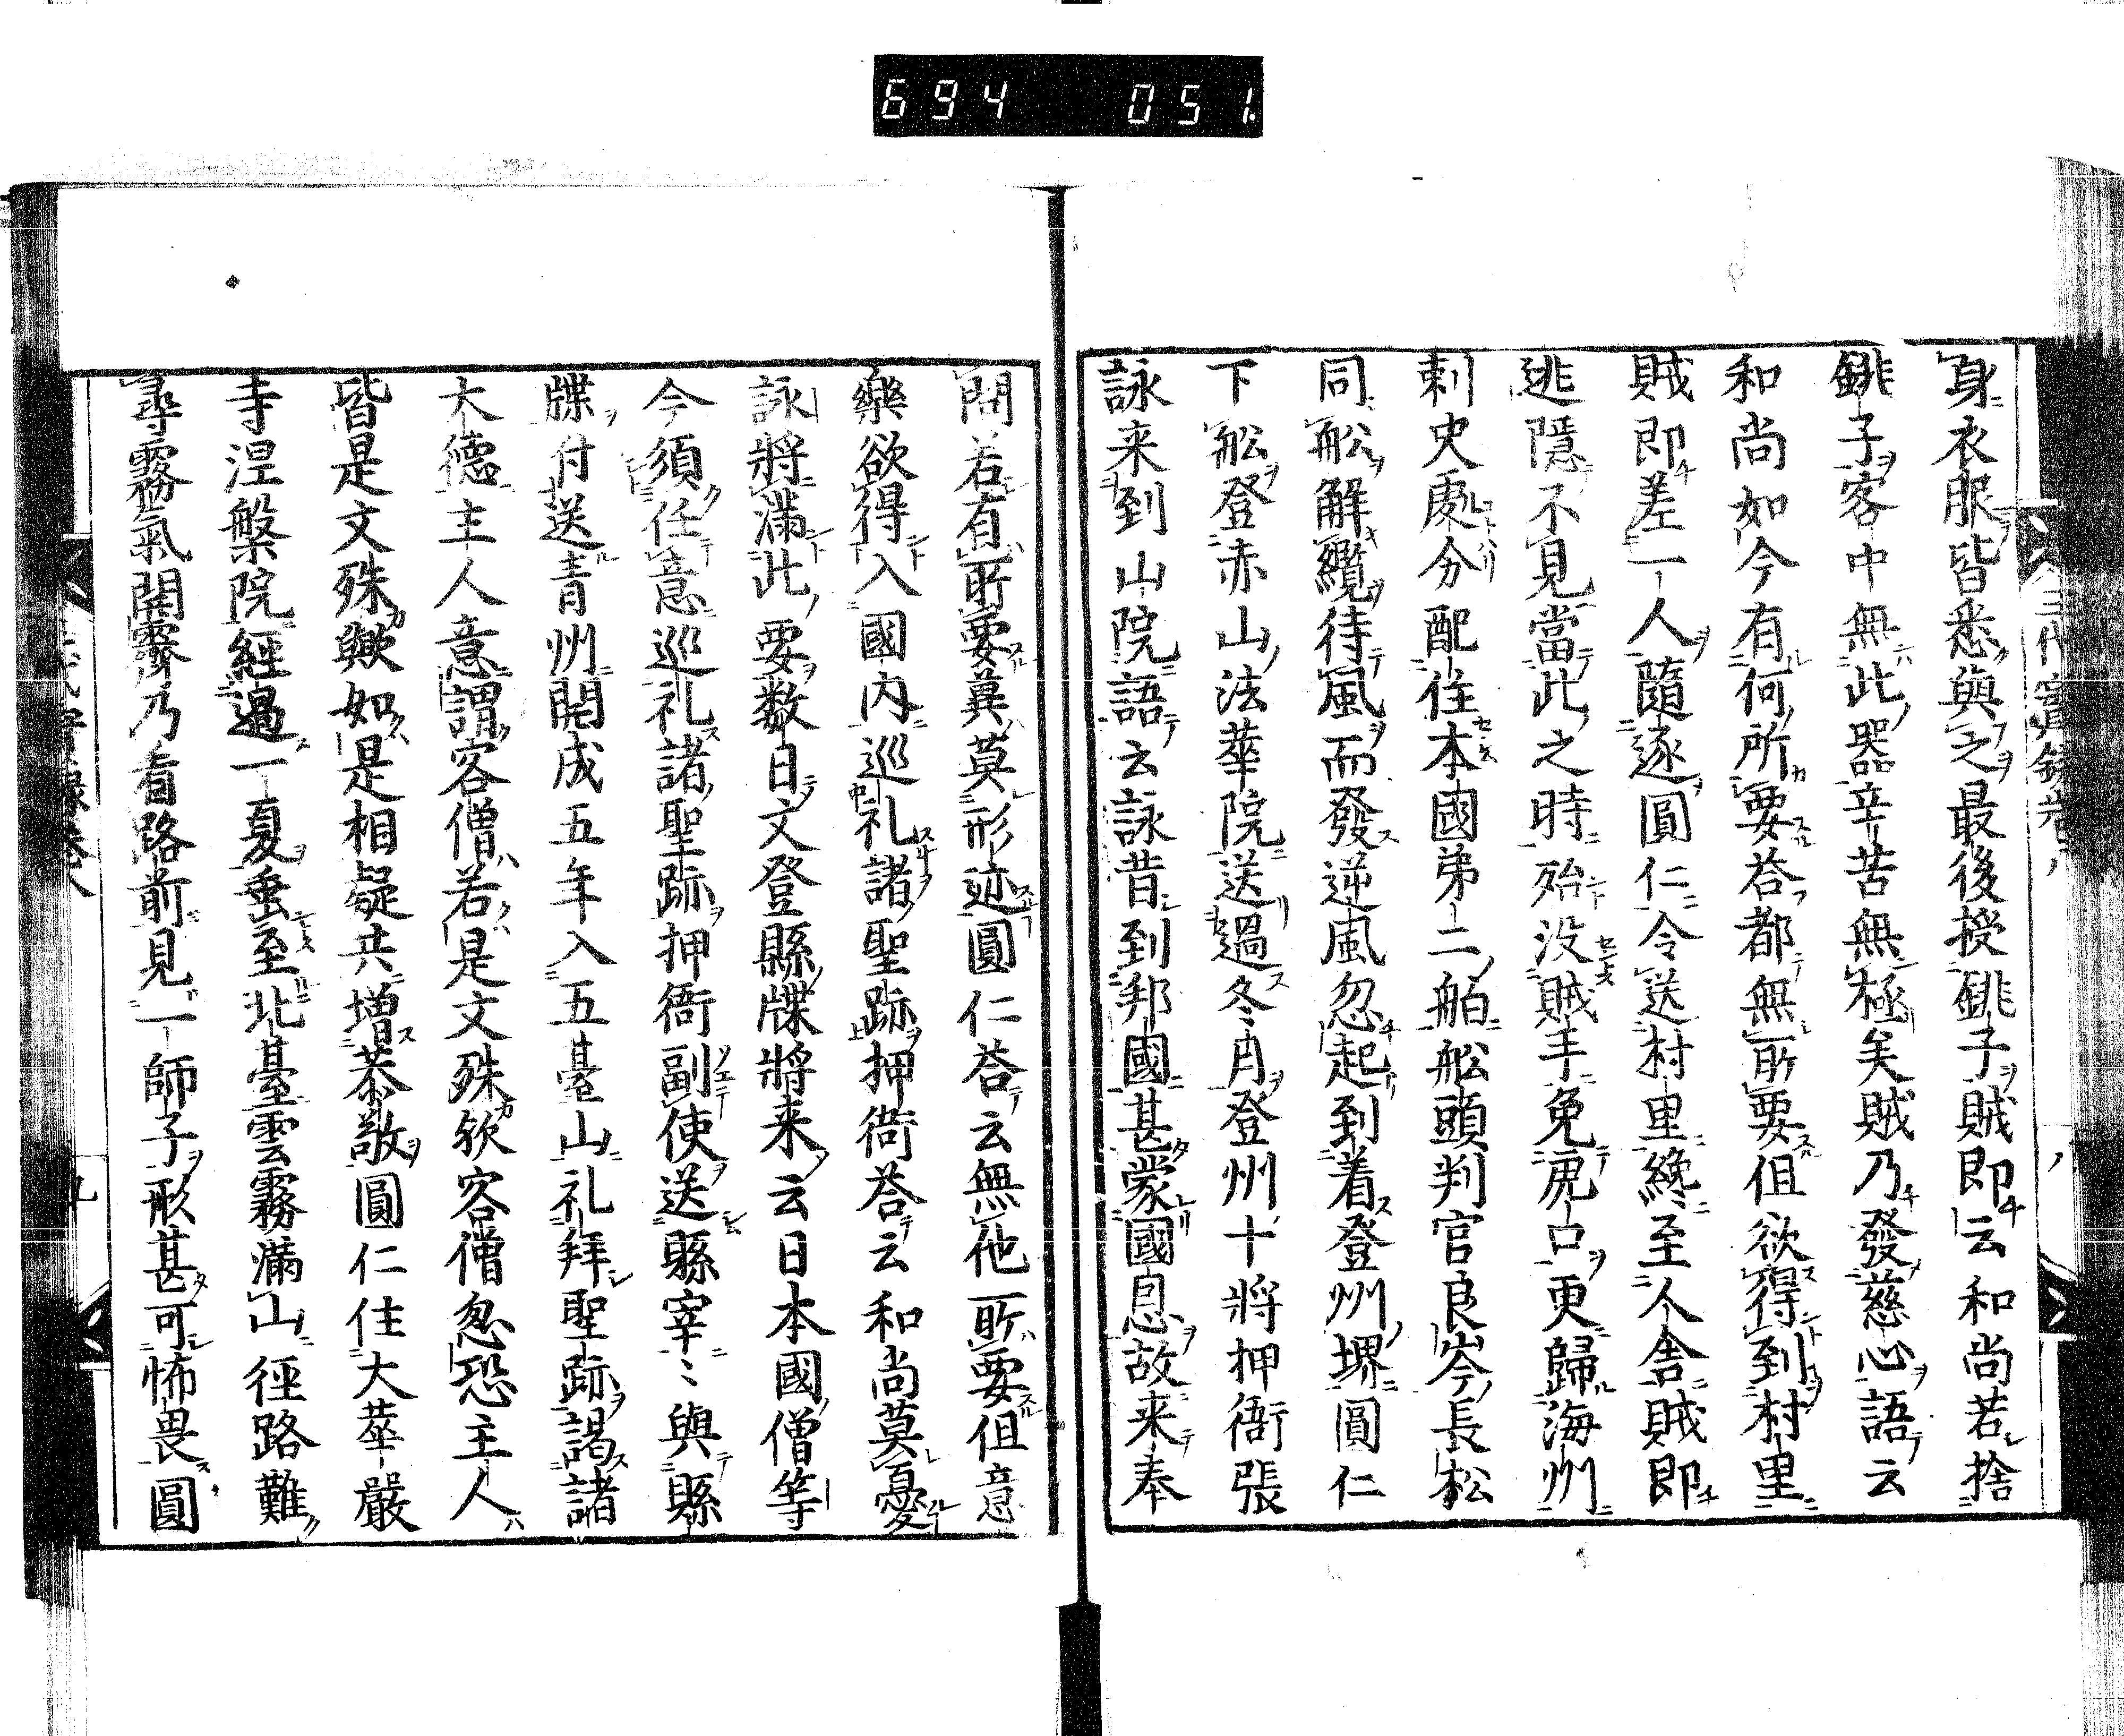 694 051
身衣服皆悉與之最後授銚子賊即云和尚若捨
銚子客中無此器辛苦無極矣賊乃發慈心語云
和尚如今有何所要荅都無所要但欲得到村里
賊即差一人隨逐圓仁令送村里纔至人舎賊即
逃隱不見當此之時殆没賊手免虎口更歸海州
刺史處分配徃本國第二舶舩頭判官良岑長松
同舩解纜待風而發逆風忽起到着登州堺圓仁
下舩登赤山法華院送過冬月登州十將押衙張
詠来到山院語云詠昔到邦國甚蒙國恩故来奉
問若有所要莫形迹圓仁荅云無他所要但意
樂欲得入國内巡礼諸聖跡押衙荅云和尚莫憂
詠將滿此要数日文登縣牒將来云日本國僧等
今須任意巡礼諸聖跡押衙副使送縣宰〻與縣
牒付送青州開成五年入五臺山礼拜聖跡謁諸
大德主人意謂客僧若是文殊欤客僧忽恐主人
皆是文殊歟如是相疑共增恭敬圓仁住大華嚴
寺涅槃院經過一夏垂至北臺雲霧滿山徑路難
尋霧氣開霽乃看路前見一師子形甚可怖畏圓